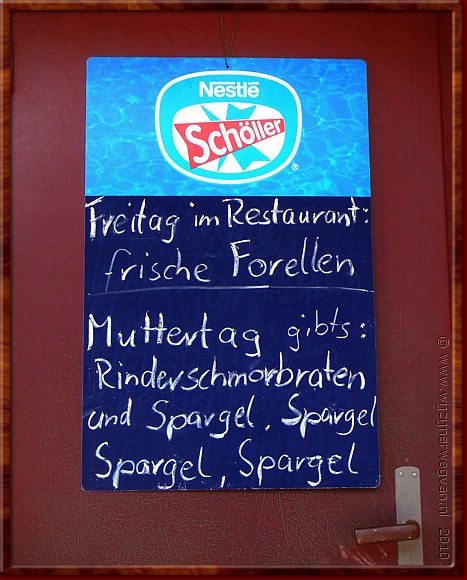 Nestlé
Schöller
®
Freitag im Restaurant:
frische Forellen
Muttertag gibts:
Rinderschmorbraten
und Spargel, Spargel
Spargel, Spargel
© www.wijzijnerwegvan.nl 2010